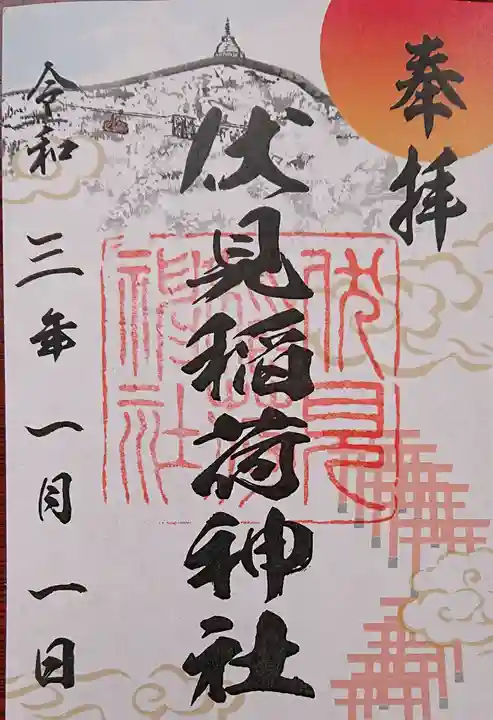 奉拝
伏見稲荷神社
令和三年一月一日
伏見
稲荷
神社